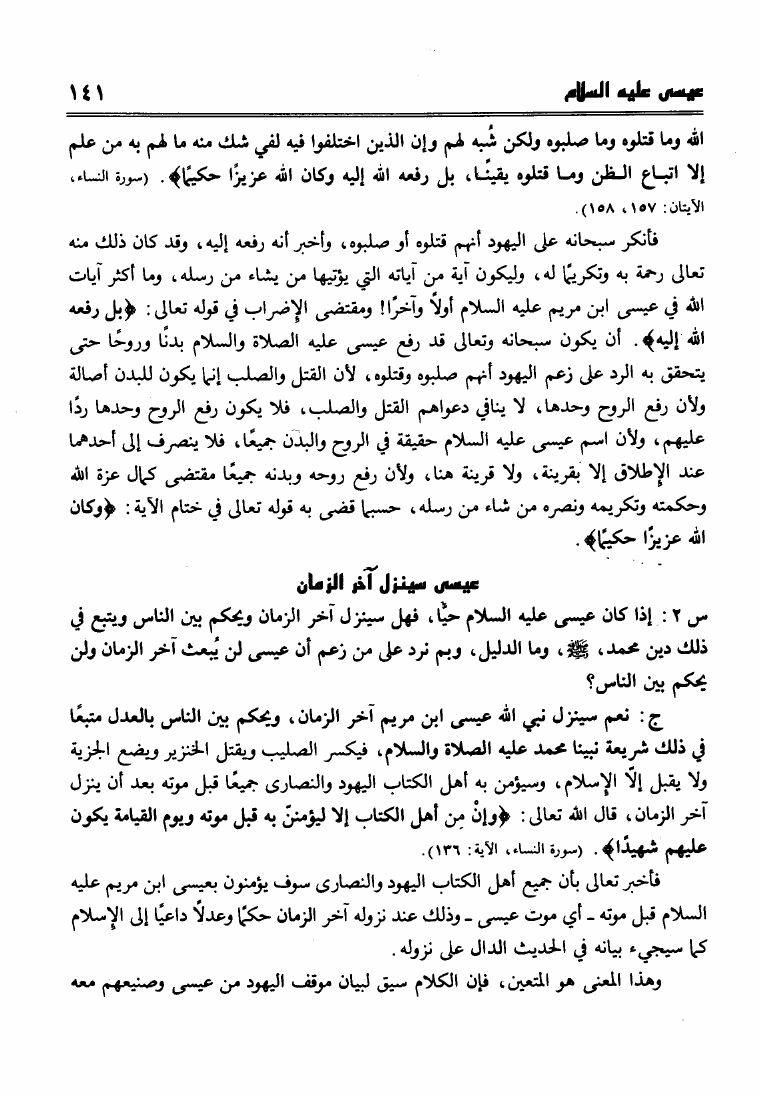 عيسى عليه السلام
١٤١
الله وما قتلوه وما صلبوه ولكن شُبه لهم وإن الذين اختلفوا فيه لفي شك منه ما لهم به من علم
إلا اتباع الظن وما قتلوه يقينًا، بل رفعه الله إليه وكان الله عزيزًا حكيمًا﴾. (سورة النساء،
الآيتان: ١٥٧، ١٥٨).
فأنكر سبحانه على اليهود أنهم قتلوه أو صلبوه، وأخبر أنه رفعه إليه، وقد كان ذلك منه
تعالى رحمة به وتكريمًا له، وليكون آية من آياته التي يؤتيها من يشاء من رسله، وما أكثر آيات
الله في عيسى ابن مريم عليه السلام أولاً وآخرًا! ومقتضى الإضراب في قوله تعالى: ﴿بل رفعه
الله إليه﴾. أن يكون سبحانه وتعالى قد رفع عيسى عليه الصلاة والسلام بدنًا وروحًا حتى
يتحقق به الرد على زعم اليهود أنهم صلبوه وقتلوه، لأن القتل والصلب إنما يكون للبدن أصالة
ولأن رفع الروح وحدها، لا ينافي دعواهم القتل والصلب، فلا يكون رفع الروح وحدها ردًا
عليهم، ولأن اسم عيسى عليه السلام حقيقة في الروح والبدن جميعًا، فلا ينصرف إلى أحدهما
عند الإطلاق إلا بقرينة، ولا قرينة هنا، ولأن رفع روحه وبدنه جميعًا مقتضى كمال عزة الله
وحكمته وتكريمه ونصره من شاء من رسله، حسبما قضى به قوله تعالى في ختام الآية: ﴿وكان
الله عزيزًا حكيمًا﴾.
عيسى سينزل آخر الزمان
س ٢: إذا كان عيسى عليه السلام حيًّا، فهل سينزل آخر الزمان ويحكم بين الناس ويتبع في
ذلك دين محمد، ﷺ، وما الدليل، وبم نرد على من زعم أن عيسى لن يُبعث آخر الزمان ولن
يحكم بين الناس؟
ج: نعم سينزل نبي الله عيسى ابن مريم آخر الزمان، ويحكم بين الناس بالعدل متبعًا
في ذلك شريعة نبينا محمد عليه الصلاة والسلام، فيكسر الصليب ويقتل الخنزير ويضع الجزية
ولا يقبل إلّا الإسلام، وسيؤمن به أهل الكتاب اليهود والنصارى جميعًا قبل موته بعد أن ينزل
آخر الزمان، قال الله تعالى: ﴿وإنْ مِن أهل الكتاب إلا ليؤمننّ به قبل موته ويوم القيامة يكون
عليهم شهيدًا﴾. (سورة النساء، الآية: ١٣٦).
فأخبر تعالى بأن جميع أهل الكتاب اليهود والنصارى سوف يؤمنون بعيسى ابن مريم عليه
السلام قبل موته ـ أي موت عيسى ـ وذلك عند نزوله آخر الزمان حكمًا وعدلاً داعيًا إلى الإسلام
كما سيجيء بيانه في الحديث الدال على نزوله.
وهذا المعنى هو المتعين، فإن الكلام سيق لبيان موقف اليهود من عيسى وصنيعهم معه